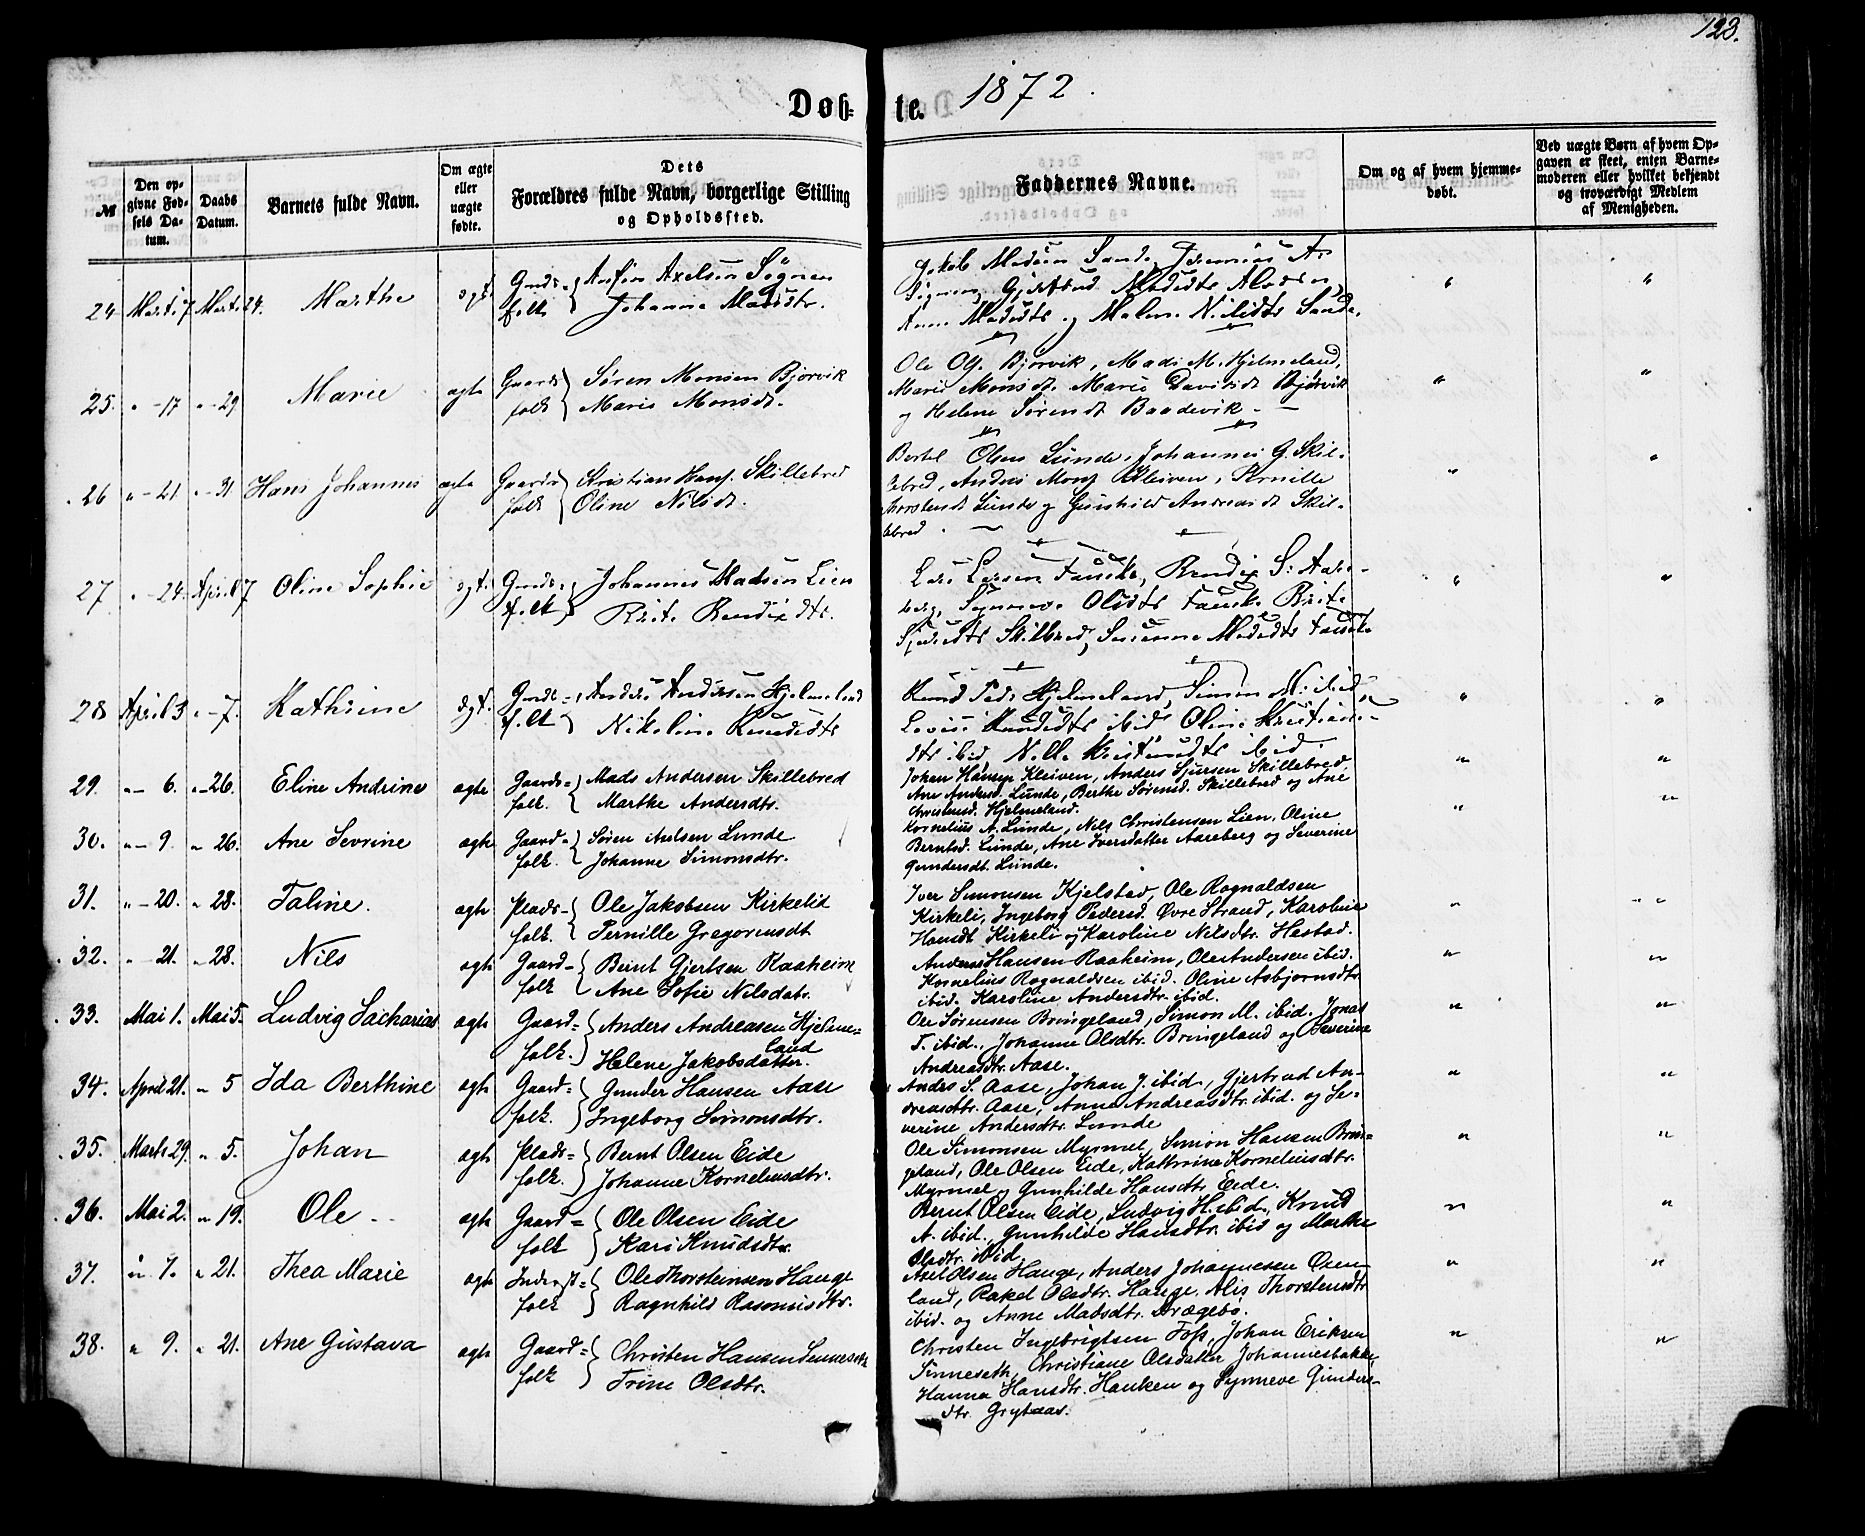 123.
Døb-te. 1872.
№
Den opgivne Fødsels Datum.
Daabs Datum.
Barnets fulde Navn.
Om ægte eller uægte fødte.
Dets Forældres fulde Navn, borgerlige Stilling og Opholdssted.
Faddernes Navne.
Om og af hvem hjemmedøbt.
Ved uægte Børn af hvem Opgaven er skeet, enten Barnemoderen eller hvilket bekjendt og troværdigt Medlem af Menigheden.
24 Marts 7 Marts 24. Marthe ægt. Gmds- Anfin Axelsen Sögnen
folk Johanne Madsdtr.
Jakob Madsen Sande,
Sögnen, Gjertrud Madsdtr
Anne Madsdtr og Malene Nilsdtr Sande.
25. " - 17 " - 29 Marie ægte Gaards Søren Monsen Bjørvik
folk Marie Monsdt.
Ole Ols. Bjørvik, Mads M. Hjelmeland,
Marie Monsdt. Marie Davidsdt Bjørvik
og Helene Sørensdt Baadevik -
26 " - 21 " - 31 Hans Johannes ægte Gaards Kristian Hans. Skillebred
folk Oline Nilsdt.
Bertel Olsen Lunde, Johannes G. Skil-
lebred, Anders Mons. Kleiven, Pernille
Thorstensdt Lunde og Gunhild Andreasdt Skil-
lebred.
27 " - 24. April 7 Oline Sophie ægt. Gmds- Johannes Madsen Lien
folk Brite Bendixdtr.
Lars Larsen Fauske, Bendix S. Aare-
berg, Synneve Olsdtr Fauske Brite
Sjursdtr Skilbred, Susanne Madsdtr Fauske
28 April 3 " - 7. Kathrine ægt. Gmds- Anders Andersen Hjelmeland
folk Nikoline Knudsdtr
Knud Peds. Hjelmeland, Simon N. ibid
Lovise Knudsdtr ibid Oline Kristians-
dtr ibid, Nille Kristensdtr ibid
29. " - 6. " - 26. Eline Andrine ægte Gaards- Mads Andersen Skillebred
folk. Marthe Andersdtr.
Johan Hansen Kleiven, Anders Sjursen Skillebred,
Ane Andersd. Lunde, Berthe Sørensd. Skillebred og Ane
Christensd. Hjelmeland.
30. " - 9. " 26. Ane Sevrine ægte Gaard- Søren Axelsen Lunde
folk. Johanne Simonsdtr.
Kornelius A. Lunde, Nils Christensen Lien, Oline
Berntsd. Lunde, Ane Iversdatter Aareberg og Severine
Gundersdt. Lunde.
31. " - 20. " 28. Taline. ægte Plads- Ole Jakobsen Kirkelid
folk. Pernille Gregoriusdt
Iver Simonsen Kjelstad, Ole Ragnaldsen
Kirkeli, Ingeborg Pedersd. Øvre Strand, Karoline
Hansdt Kirkeli og Karoline Nilsdtr. Hestad.
32. " - 21. " 28. Nils ægte Gaard- Bernt Gjertsen Raaheim
folk Ane Sofie Nilsdatr.
Anders Hansen Raaheim, Ole Andersen ibid.
Kornelius Ragnaldsen ibid. Oline Asbjørnsdtr
ibid. Karoline Andersdtr. ibid.
33. Mai 1. Mai 5. Ludvig Sacharias ægte Gaard- Anders Andreasen Hjelme-
land
folk. Helene Jakobsdatter.
Ole Sørensen Bringeland, Simon M. ibid. Jonas
T. ibid., Johanne Olsdtr. Bringeland og Severine
Andreasdtr. Aase.
34. April 21. " 5 Ida Berthine ægte Gaard- Gunder Hansen Aase
folk. Ingeborg Simonsdtr.
Anders S. Aase, Johan J. ibid., Gjertrud An-
dreasdtr. Aase, Anne Andreasdtr. ibid. og Se-
verine Andersdtr. Lunde
35. Marts 29. " 5. Johan ægte Plads- Bernt Olsen Eide
folk. Johanne Korneliusdtr.
Ole Simonsen Myrmel, Simon Hansen Brin-
geland, Ole Olsen Eide, Kathrine Korneliusdtr.
Myrmel og Gunhilde Hansdtr. Eide.
36. Mai 2. " 19. Ole ægte Gaard- Ole Olsen Eide
folk Kari Knudsdtr.
Bernt Olsen Eide, Ludvig H. ibid., Knud
A. ibid., Gunhilde Hansdtr. ibid og Marthe
Olsdtr. ibid.
37. " 7. " 21. Thea Marie ægte Inderst- Ole Thorsteinsen Hauge
folk Ragnhild Rasmusdtr.
Axel Olsen Hauge, Anders Johannesen Øsen-
land, Rakel Olsdtr. Hauge. Alis Thorstensdtr
ibid. og Anne Madsdtr. Drægebø.
38. " 9. " 21. Ane Gustava ægte Gaard- Christen Hansen Sinneseth
folk Trine Olsdtr.
Christen Ingebrigtsen Foss, Johan Eriksen
Sinneseth, Christiane Olsdatter Johannesbakke,
Hanna Hansdtr. Hauken og Synneve Gunders-
dtr. Grytaas.